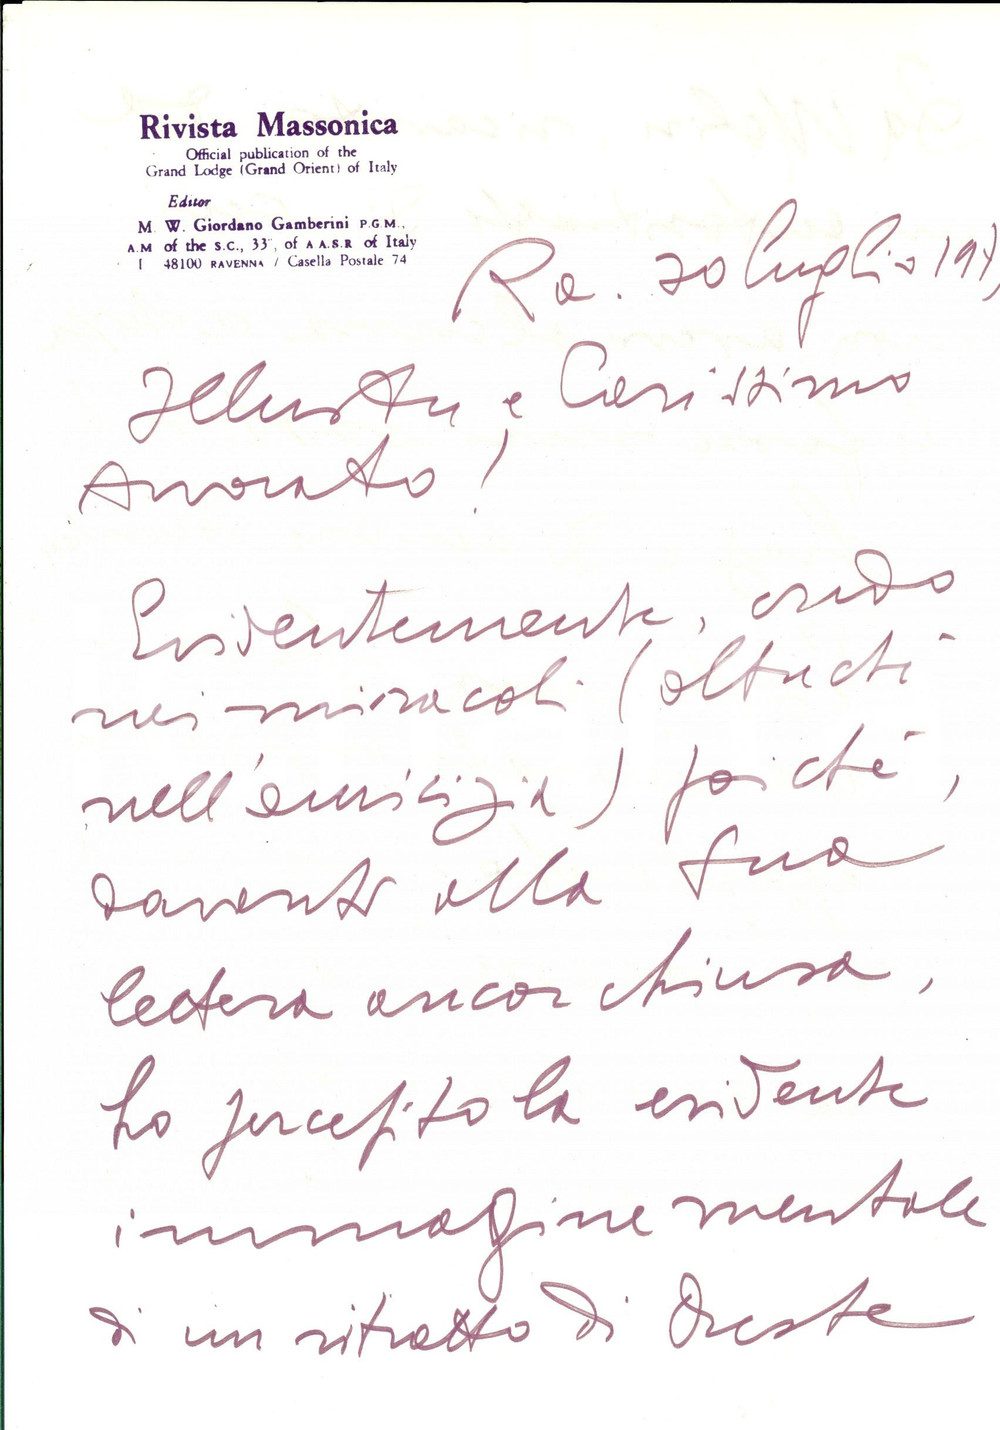 Rivista Massonica
Official publication of the
Grand Lodge (Grand Orient) of Italy
Editor
M. W. Giordano Gamberini P.G.M.,
A.M of the S.C., 33°, of A A.S.R of Italy
I 48100 RAVENNA / Casella Postale 74
Ra. 20 luglio 197
Illustre e Carissimo
Avvocato!
Evidentemente, credo
nei miracoli (oltreché
nell'amicizia) poiché,
davanti alla Sua
lettera ancor chiusa,
ho percepito la evidente
immagine mentale
di un ritratto di Oreste